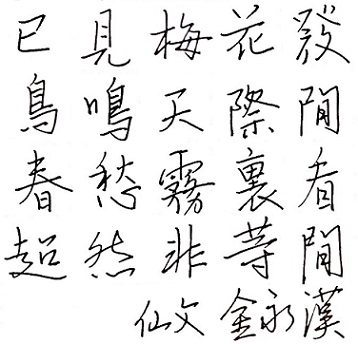 已見梅花發
鳥鳴天際聞
春愁霧裏看
超然非等閒
仙文 金永漢